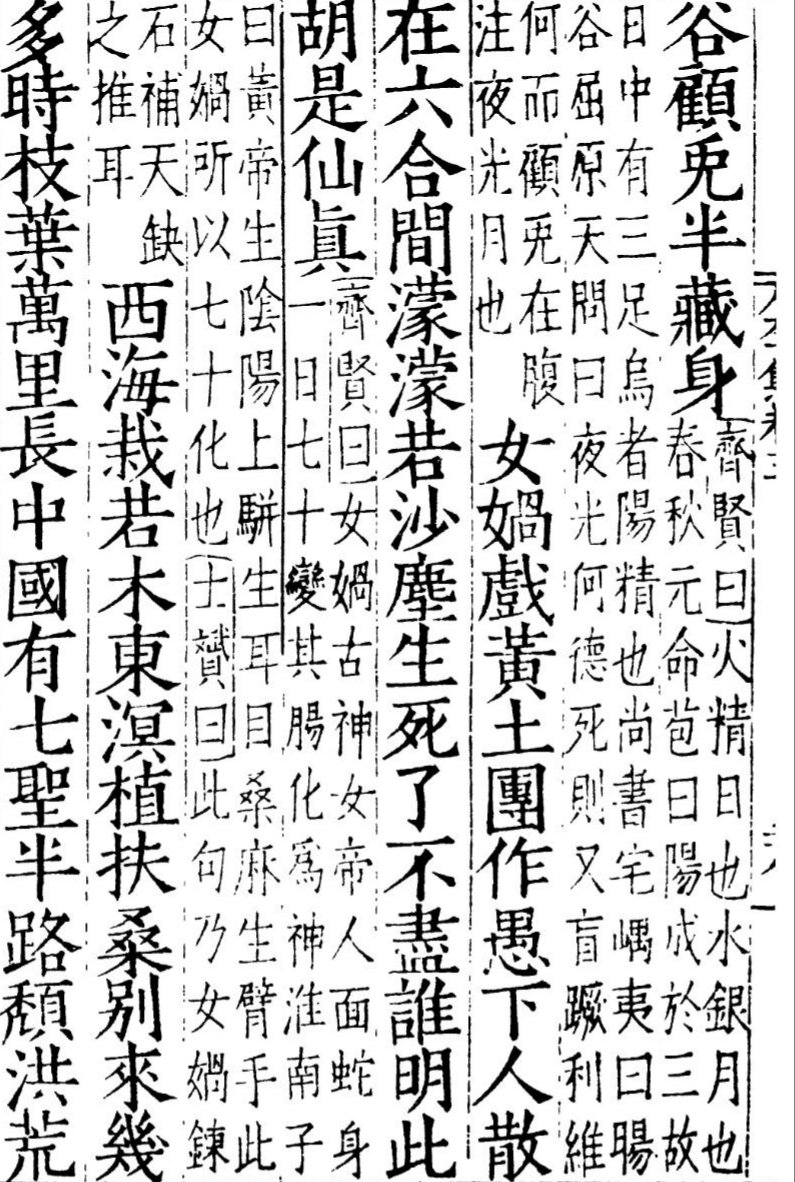 谷顧兎半藏身
齊賢曰火精日也水銀月也
春秋元命苞曰陽成於三故
日中有三足烏者陽精也尚書宅嵎夷曰暘
谷屈原天問曰夜光何德死則又盲蹶利維
何而顧兎在腹
注夜光月也
女媧戲黃土團作愚下人散
在六合間濛濛若沙塵生死了不盡誰明此
胡是仙眞
齊賢曰女媧古神女帝人面蛇身
一日七十變其腸化爲神淮南子
曰黃帝生陰陽上駢生耳目桑麻生臂手此
女媧所以七十化也士贇曰此句乃女媧鍊
石補天缺
之推耳
西海栽若木東溟植扶桑别來幾
多時枝葉萬里長中國有七聖半路頹洪荒